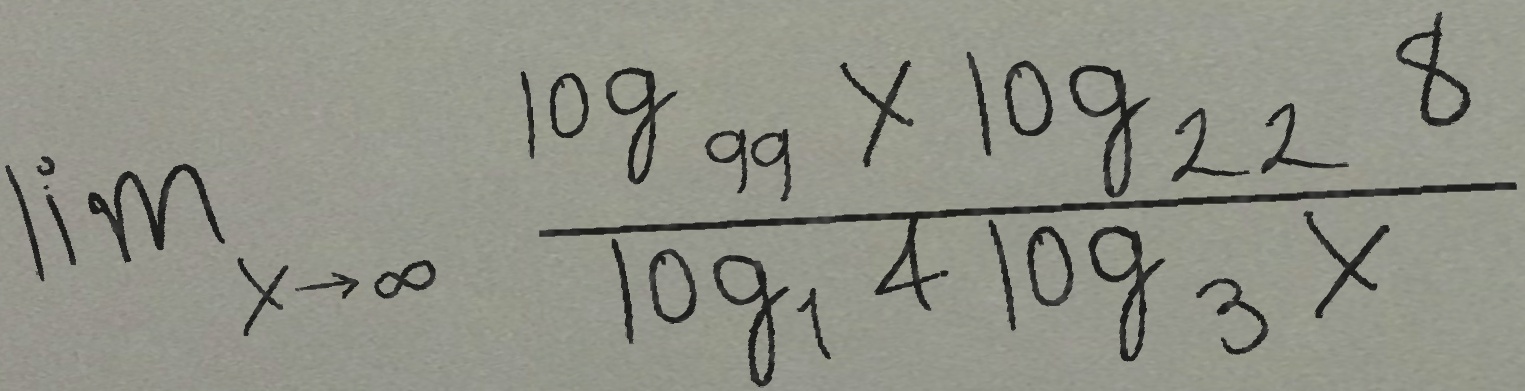 lim x→∞ log₉₉ x log₂₂ 8 / log₁ 4 log₃ x